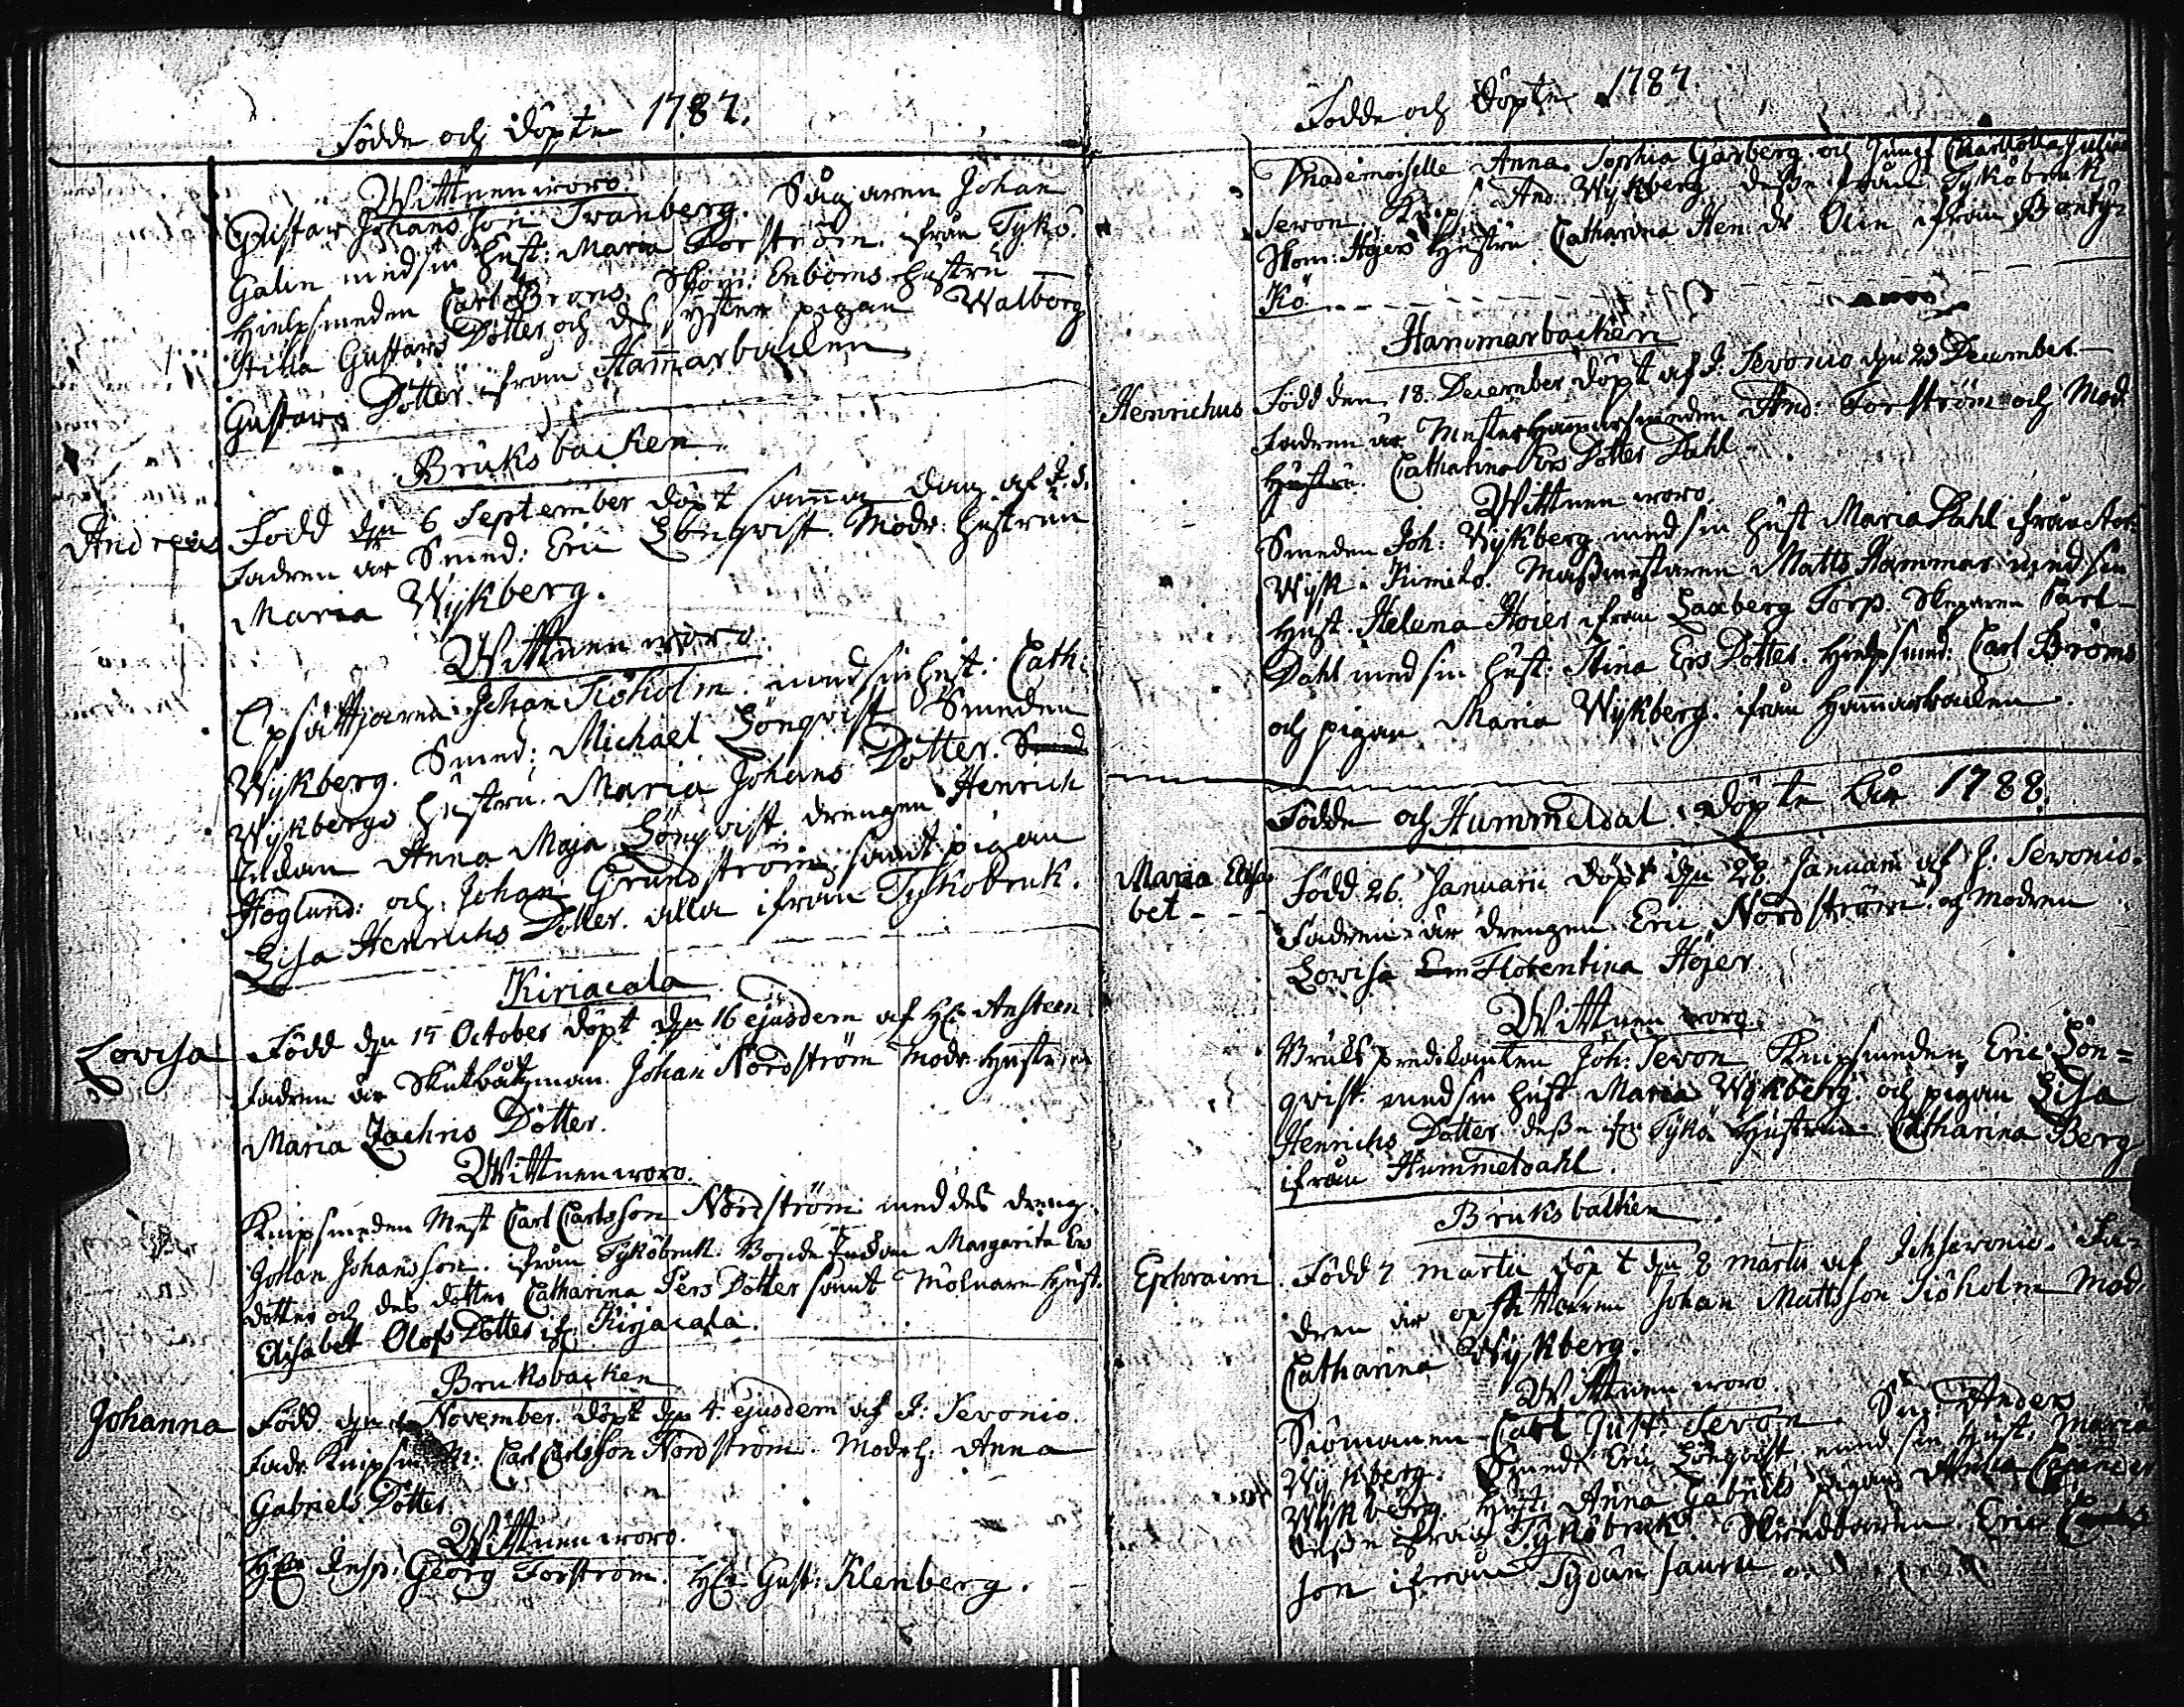 Födde och döpte 1787.
Wittnen woro.
Gustav Johansson Tranberg. Sågaren Johan
Galin med sin hust: Maria Forström. ifrån Tykö.
Hielpsmeden Carl Broms. Enboms hustru
Stina Gustavs Dotter och des syster pigan Walborg
Gustavs Dotter. ifrån Hammarbacken
Bruksbacken.
Andreas Född den 6 September döpt samma dag af J. S.
Fadren är Smed: Eric Lönqvist. Modr: hustrun
Maria Wijkberg.
Wittnen woro.
Upsättjaren Johan Siöholm. med sin hust: Cath:
Wijkberg. Smed: Michael Lönqvist Smeden
Wijkbergs hustru. Maria Johans Dotter. Smed
Enkan Anna Maja Lönqvist. drengen Henrich
Höglund: och Johan Grundström, samt pigan
Lisa Henrichs Dotter. alla ifrån Tyköbruk.
Kiriacala
Lovisa Född den 15 October döpt den 16 ejusdem af Hr Ahlsteen
Fadren är Skutbåtzman. Johan Nordström Modr. Hustrun
Maria Zachris Dotter.
Wittnen woro.
Knipsmeden Mest Carl Carlsson Nordström med des dreng.
Johan Johansson. ifrån Tyköbruk. Bonde Enkan Margarita Ers
dotter och des dotter Catharina Pers Dotter samt Molnarn Hust.
Elisabet Olofs Dotter if: Kirjacala.
Bruksbacken
Johanna Född den November. döpt den 4. ejusdem af J: Sevonio.
Fadr Knipsm M: Carl Carlsson Nordström. Modr h: Anna
Gabriels Dotter
Wittnen woro.
Hr Insp: Georg Forström. Hr Gust: Klenberg.
Födde och Döpte 1787.
Mademoiselle Anna Sophia Garberg. och Jungf Charllotta Juliana
Sevon. Knips And. Wijkberg desse ifrån Tyköbruk
Skom: Höjers Hustru Catharina Hen. dr Olin ifrån Bonty=
Kö
Hammarbacken
Henrichus Född den 18. December döpt af J. Sevonio den 23 December.
Fadren är Mester Hammarsmeden And: Forström och Mod:
Hustru. Catharina Ers Dotter Dahl
Wittnen woro.
Smeden Joh: Wijkberg med sin hust Maria Dahl ifrån
Wijk i Kimito. Masmestaren Matts Hammar med sin
Hust. Helena Höjer ifrån Laxberg Torp. Carl
Dahl med sin hust: Stina Ers Dotter. Hielpsmed: Carl Broms
och pigan Maria Wijkberg. ifrån Hammarbacken.
Födde och Hummeldal. döpte År 1788.
Maria Elisa= Född 26. Januarii döpt den 28 Januarii af J: Sevonio.
bet - - - Fadren är drengen Eric Nordström. och Modren
Lovisa Florentina Höjer.
Wittnen woro.
Bruks predikanten Joh: Sevon Knipsmeden Eric Lön=
qvist. med sin hust Maria Wijkberg. och pigan Lisa
Henrichs Dotter desse ifr Tykö Hustrun Catharina Berg
ifrån Hummeldahl.
Bruksbacken
Ephraim. Född 7 martii döpt den 8 martii af Joh Sevonio. Fa=
dren är opsättaren Johan Mattsson Siöholm Mod:
Catharina Wijkberg.
Wittnen woro.
Siömannen Carl Gust: Sevon. Sm: Anders
Wijkberg. Smed: Eric Lönqvist, med sin hust: Maria
Wijkberg. hust: Anna Gabriels pigan
desse ifrån Tyköbruk. Eric
son ifrån